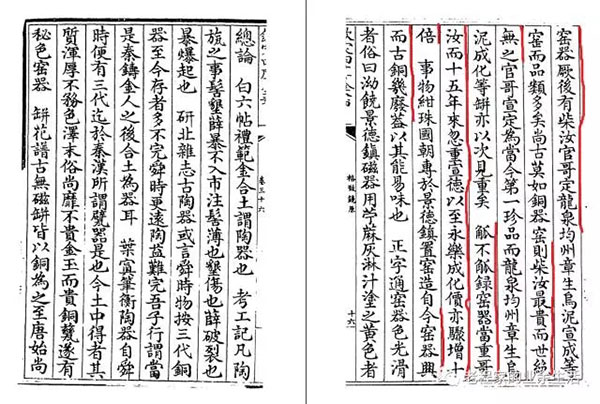 總論 白六帖禮範金合土謂陶器也 考工記凡陶
旊之事髻墾薜暴不入市注髻薄也墾傷也薜破裂也
暴爆起也 研北雜志古陶器或言舜時物按三代銅
器至今存者多不完舜時更遠陶益難完吾子行謂當
是秦鑄金人之後合土為器耳 葉寘筆衡陶器自舜
時便有三代迄於秦漢所謂甓器是也今土中得者其
質渾厚不務色澤末俗尚靡不貴金玉而貴銅甆遂有
秘色窑器 缾花譜古無磁缾皆以銅為之至唐始尚
卷三十六
窑器厥後有柴汝官哥定龍泉均州章生烏泥宣成等
窑而品類多矣尚古莫如銅器窑則柴汝最貴而世絶
無之官哥宣定為當今第一珍品而龍泉均州章生烏
泥成化等缾亦以次見重矣 觚不觚録窑器當重哥
汝而十五年來忽重宣德以至永樂成化價亦驟增十
倍 事物紺珠國朝專於景德鎮置窑造自今窑器興
而古銅幾廢益以其能易味也 正字通窑器色光滑
者俗曰泑饒景德鎮磁器用苧蔴灰淋汁塗之黄色者
格致鏡原
十六
老程家的业余生活